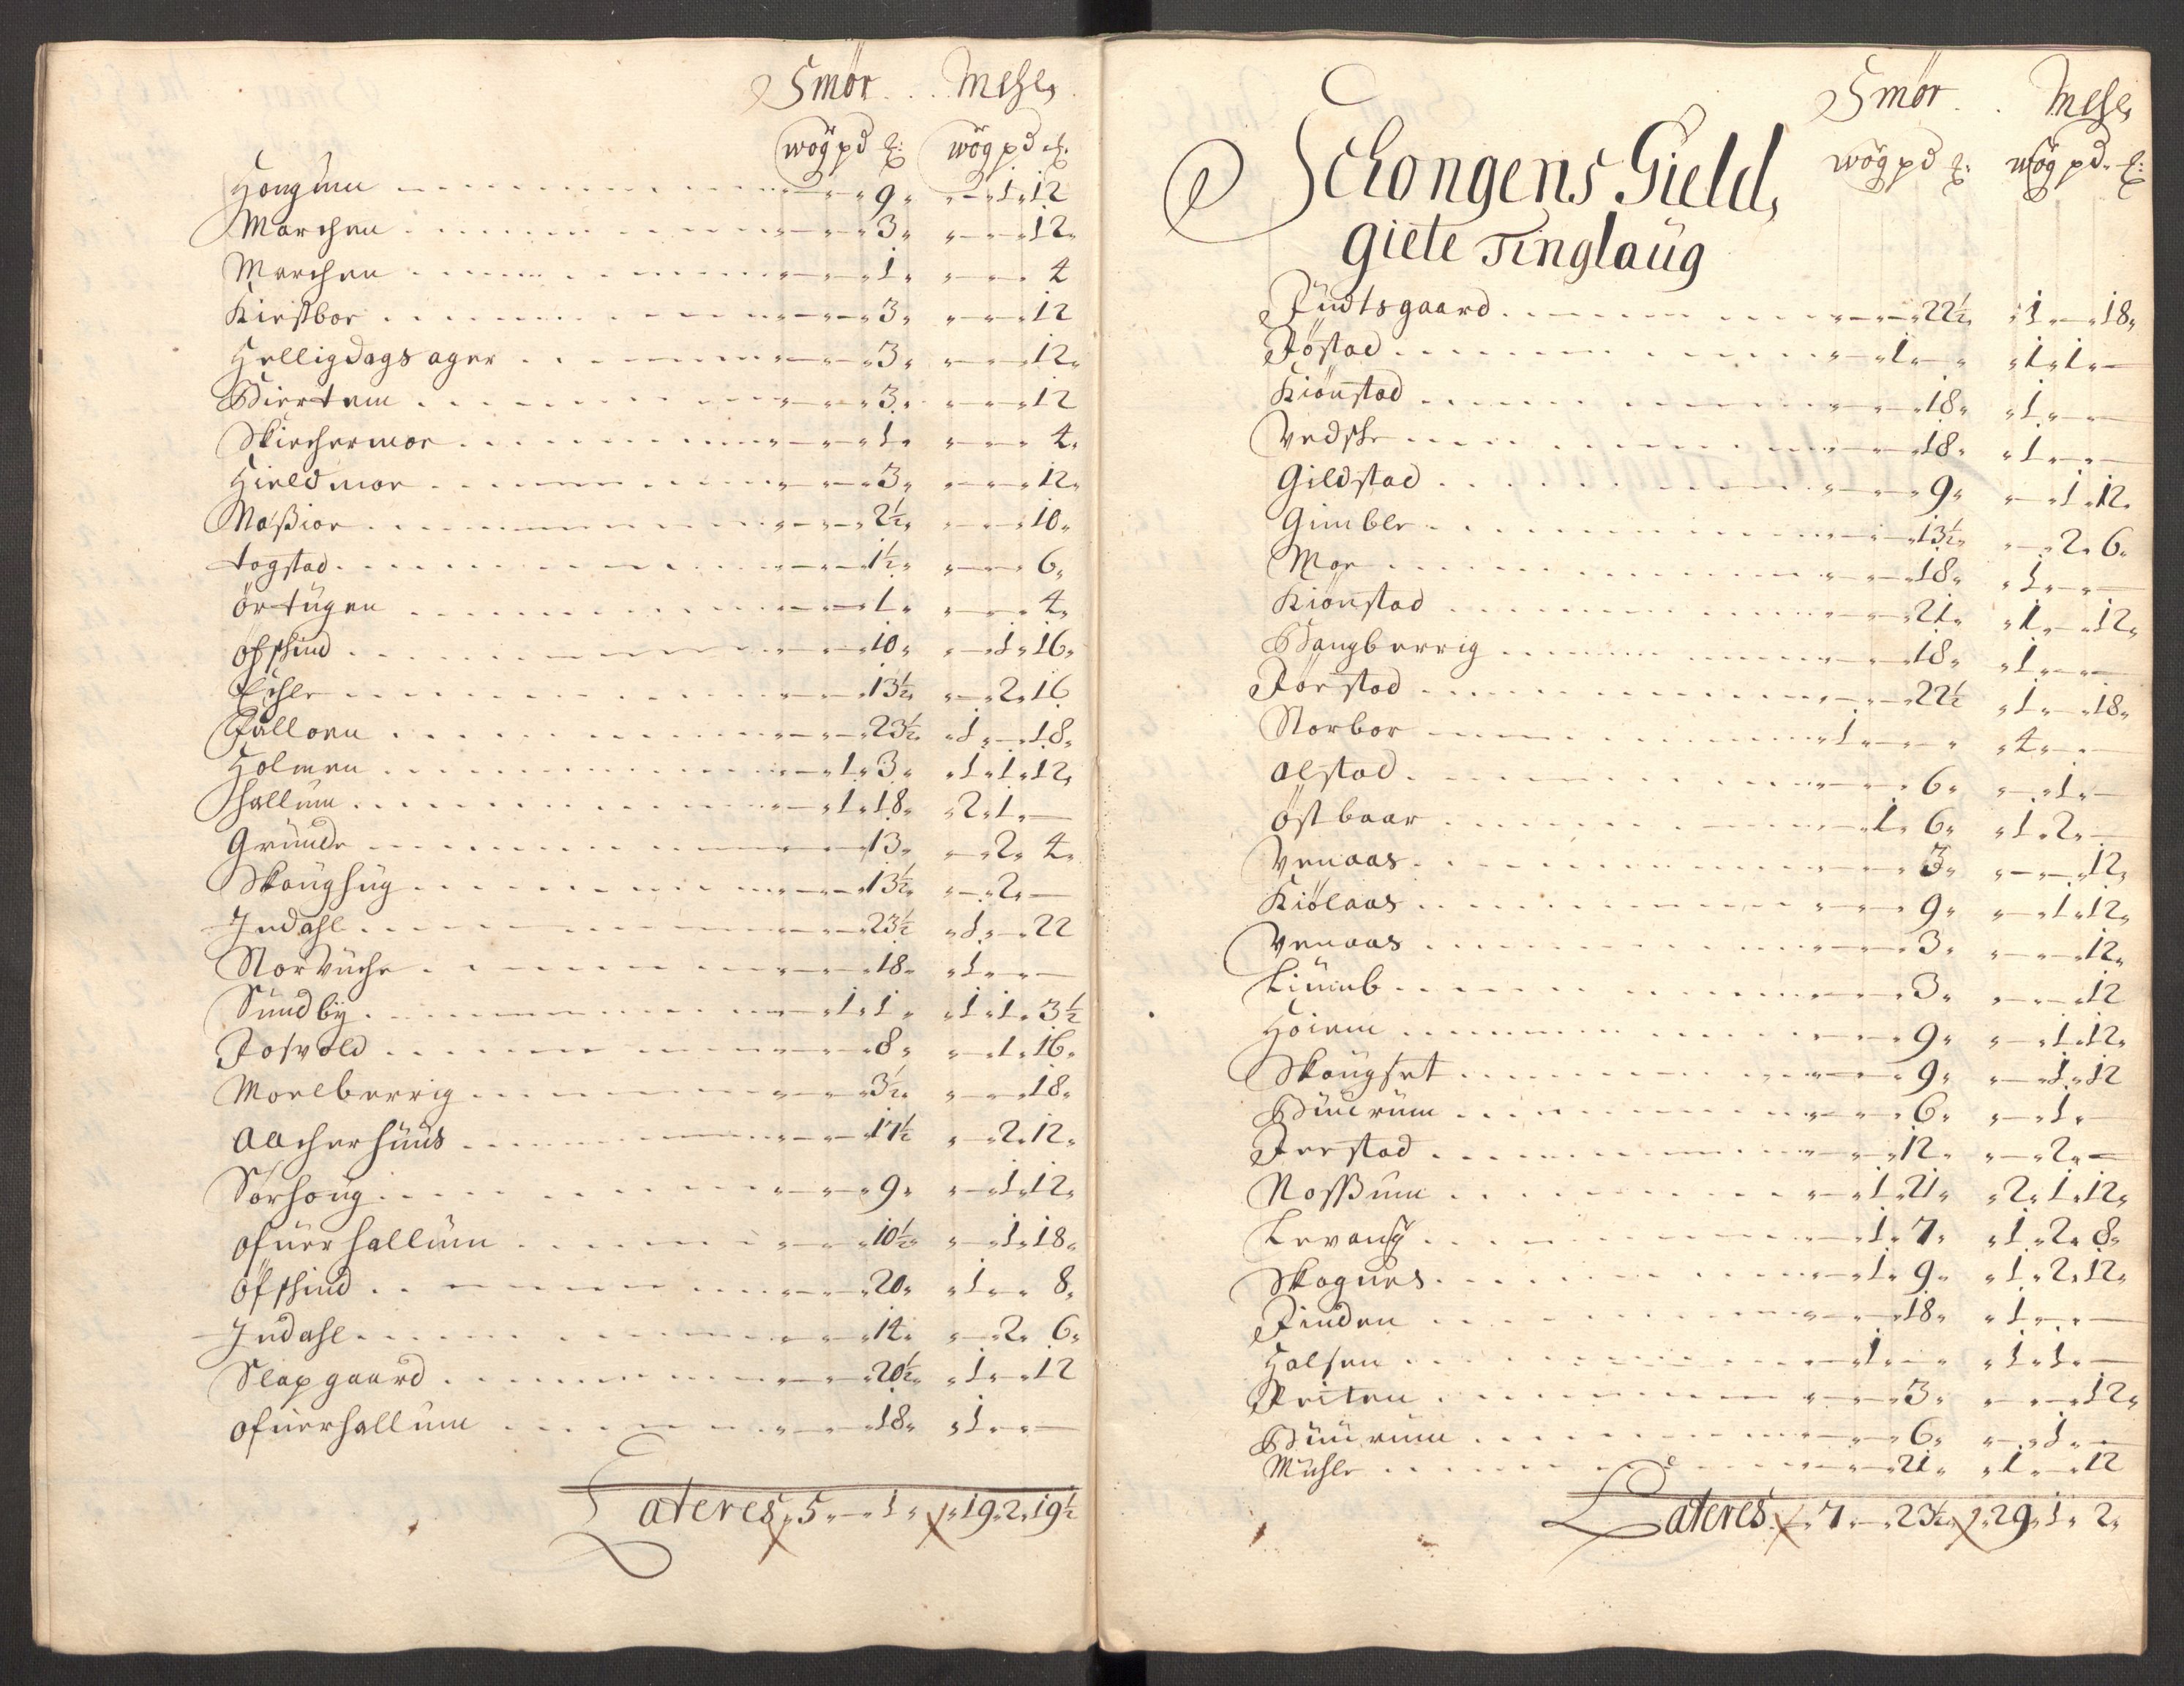 Smör . . Mehl,
wog pd ℔: wog pd ℔.
Hougum - - - 9, - 1, 12
Marchen - - - 3, - - 12,
Marchen - - - 1, - - 4
Kirstbor - - - 3, - - 12
Helligdagsager - - - 3, - - 12,
Biertem - - - 3, - - 12
Skirchermoe - - - 1, - - 4,
Hieldmoe - - - 3, - - 12,
Maßior - - - 2½, - - 10,
togstad - - - 1½, - - 6,
örtugen - - - 1, - - 4,
öfskind - - - 10, - 1, 16,
Echle - - - 13½, - 2, 16
Fälloen - - - 23½, 1, - 18,
Holmen - - 1, 3, 1, 1, 12,
hallum - - 1, 18, 2, 1, -
Grunde - - - 13, - 2, 4,
Skoughug - - - 13½, - 2, -
Indahl - - - 23½ 1, - 22
Storvuche - - - 18, 1, - -
Sundby - - 1, 1, 1, 1, 3½
Rosvold - - - 8, - 1, 16,
Moelberrig - - - 3½, - - 18,
Aacherhuus - - - 17½ - 2, 12,
Sörhoug - - - 9, - 1, 12,
ofuerhallum - - - 10½, - 1, 18,
öfskind - - - 20, 1, - 8,
Indahl - - - 14, - 2, 6,
Slapgaard - - - 20½, 1, - 12
ofuerhallum - - - 18, 1, - -
Lateres, 5, - 1, 19, 2, 19½
Smör . . Mehl,
wog pd ℔: wog pd. ℔:
Schongens Gield,
giete Tinglaug
Rudtsgaard - - - 22½, 1, - 18,
Röstad - - 1, - 1, 1, -
Kiönstad - - - 18, 1, - -
Vedsle - - - 18, 1, - -
Gildstad - - - 9, - 1, 12,
Gimble - - - 13½, - 2, 6,
Moe - - - 18, 1, - -
Kionstad - - - 21, 1, - 12,
Bangberrig - - - 18, 1, - -
Förstad - - - 22½ 1, - 18,
Norbor - - 1, - - 4, - -
alstad - - - 6, - 1, -
östbaar - - 1, 6, 1, 2, -
Venaas - - - 3, - - 12,
Kiölaas - - - 9, - 1, 12,
Venaas - - - 3, - - 12,
Liumb - - - 3, - - 12
Höiem - - - 9, - 1, 12,
Skougset - - - 9, - 1, 12
Buurum - - - 6, - 1, -
Ferstad - - - 12, - 2, -
Noßum - - 1, 21, 2, 1, 12,
Levang - - 1, 7, 1, 2, 8,
Skognes - - 1, 9, 1, 2, 12,
Rinden - - - 18, 1, - -
Halsen - - 1, - 1, 1, -
Reiten - - - 3, - - 12,
Buurum - - - 6, - 1, -
Muhle - - - 21, 1, - 12
Lateres, 7, - 23½, 29, 1, 2,